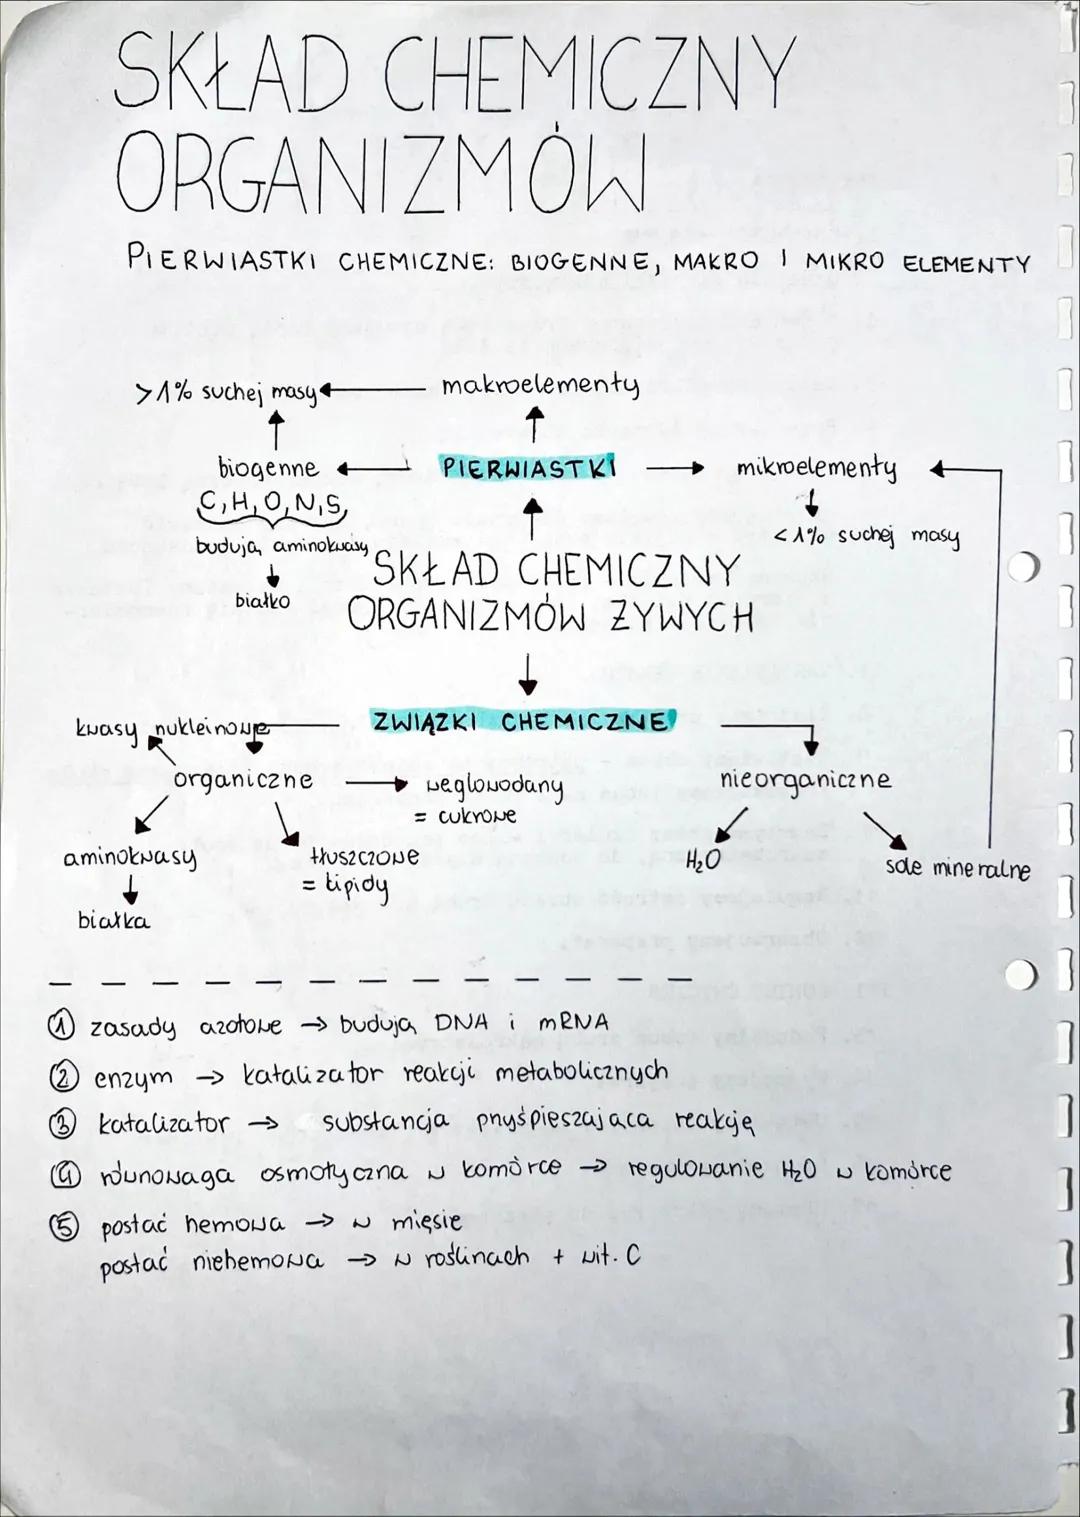 SKŁAD CHEMICZNY
ORGANIZMÓW
PIERWIASTKI CHEMICZNE: BIOGENNE, MAKRO I MIKRO ELEMENTY
>1% suchej masy
makroelementy
biogenne
PIERWIASTKI
mikroelementy
C, H, O, N, S,
<1% suchej masy
budują aminokwasy
białko
SKŁAD CHEMICZNY
ORGANIZMÓW ŻYWYCH
kwasy nukleinowe
ZWIĄZKI CHEMICZNE
organiczne
węglowodany
= cukrowe
nieorganiczne
aminokwasy
białka
tłuszczowe
= lipidy
H₂O
sole mineralne
① zasady azotowe → budują DNA i mRNA
② enzym → katalizator reakcji metabolicznych
③ katalizator → substancja pryśpieszająca reakcję
④ równowaga osmotyczna w komórce → regulowanie H₂O w komórce
⑤ postać hemowa → w mięsie
postać niehemowa → w roślinach + wit. C